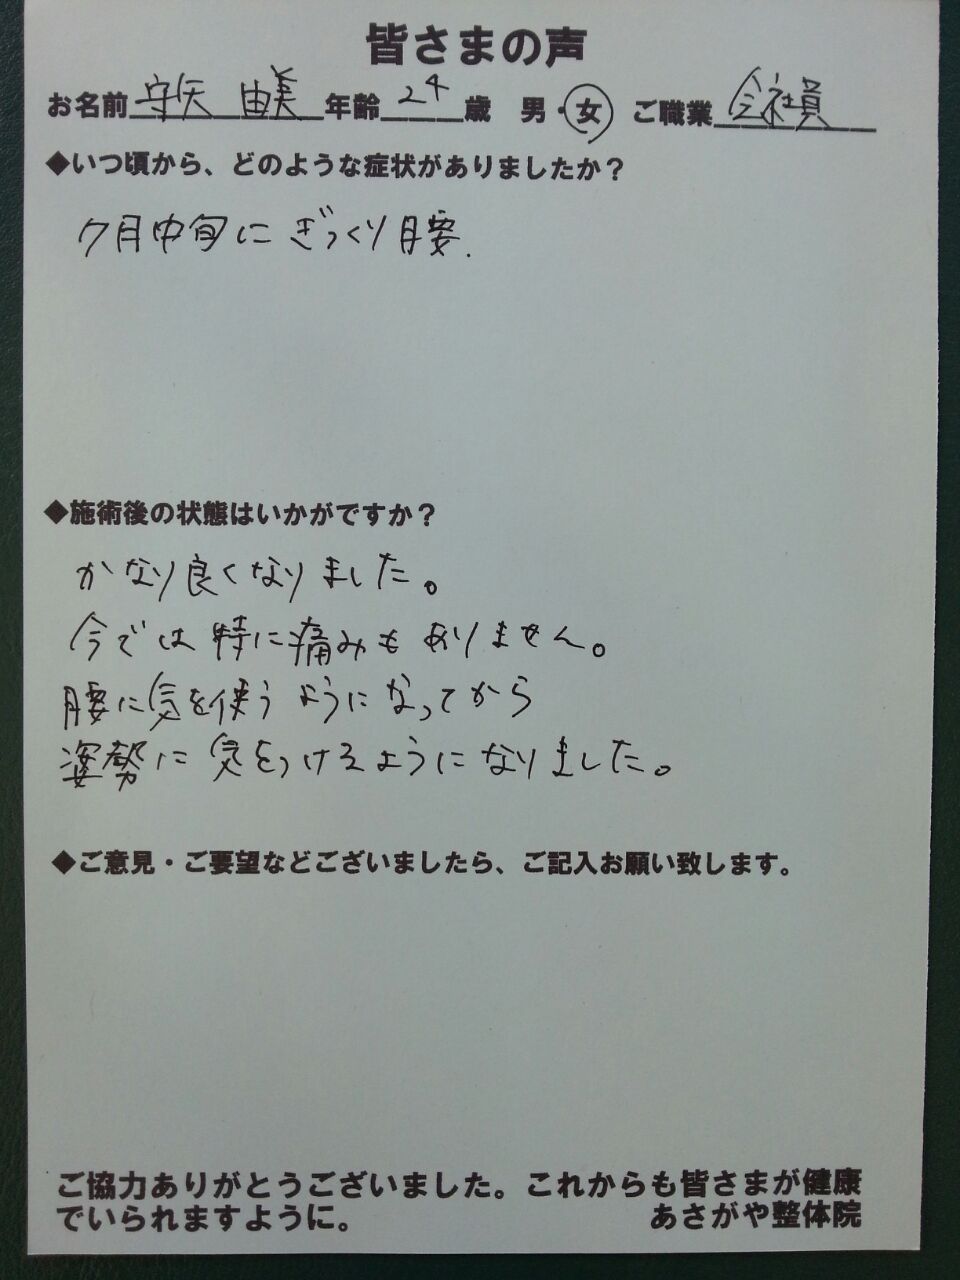 皆さまの声
お名前 守矢 由美 年齢 24 歳 男・女 ご職業 会社員
◆いつ頃から、どのような症状がありましたか？
7月中旬にぎっくり腰.
◆施術後の状態はいかがですか？
かなり良くなりました。
今では特に痛みもありません。
腰に気を使うようになってから
姿勢に気をつけるようになりました。
◆ご意見・ご要望などございましたら、ご記入お願い致します。
ご協力ありがとうございました。これからも皆さまが健康
でいられますように。 あさがや整体院